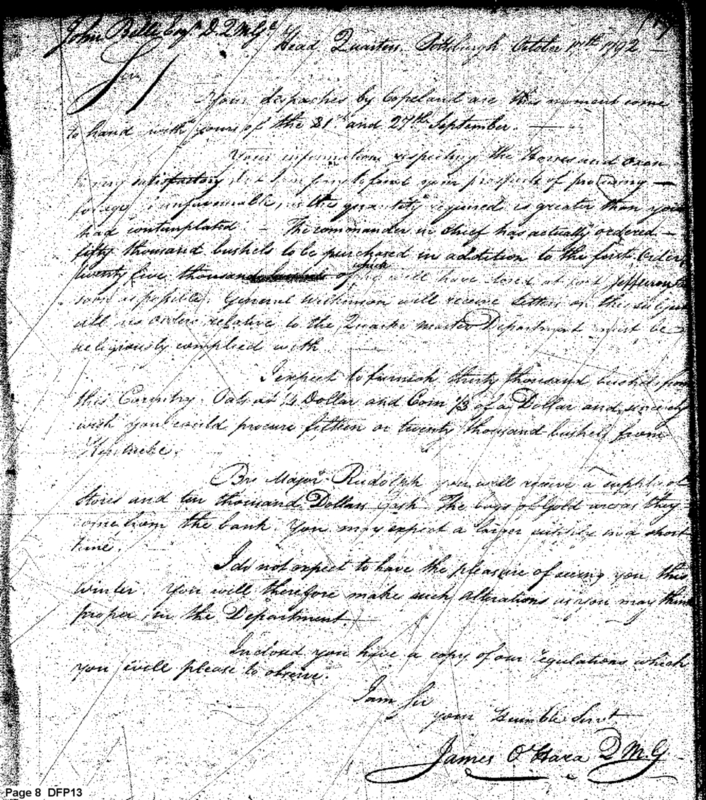 John Belli Esqr. D.Q.M.G.
Head Quarters Pittsburgh October 1792
Sir
Your despaches by Copeland are this moment come
to hand with yours of the 21st and 27th September.
Your information respecting the Horses and Oxen
is very satisfactory but I am sorry to find your prospects of procuring
forage unfavourable as the quantity required is greater than you
had contemplated. The commander in Chief has actually ordered
fifty thousand bushels to be purchased in addition to the first Order
twenty five thousand of which will have stored at fort Jefferson
soon as possible. General Wilkinson will receive Letters on this subject
all his orders relative to the Quarter master Department must be
religiously complied with
I expect to furnish thirty thousand bushels from
this Country. Oats at Dollar and Corn 1/3 of a Dollar and sincerely
wish you could procure fifteen or twenty thousand bushels from
By Major Rudolph you will receive a supply of
stores and ten thousand Dollars Cash. The bags of Gold are as they
come from the bank. You may expect a larger supply in a short
time.
I do not expect to have the pleasure of seeing you this
winter. You will therefore make such alterations as you may think
proper in the Department
Inclosed you have a copy of our regulations which
you will please to observe.
I am Sir
your Humble Servt
James O'Hara Q.M.G
Page 8 DFP13